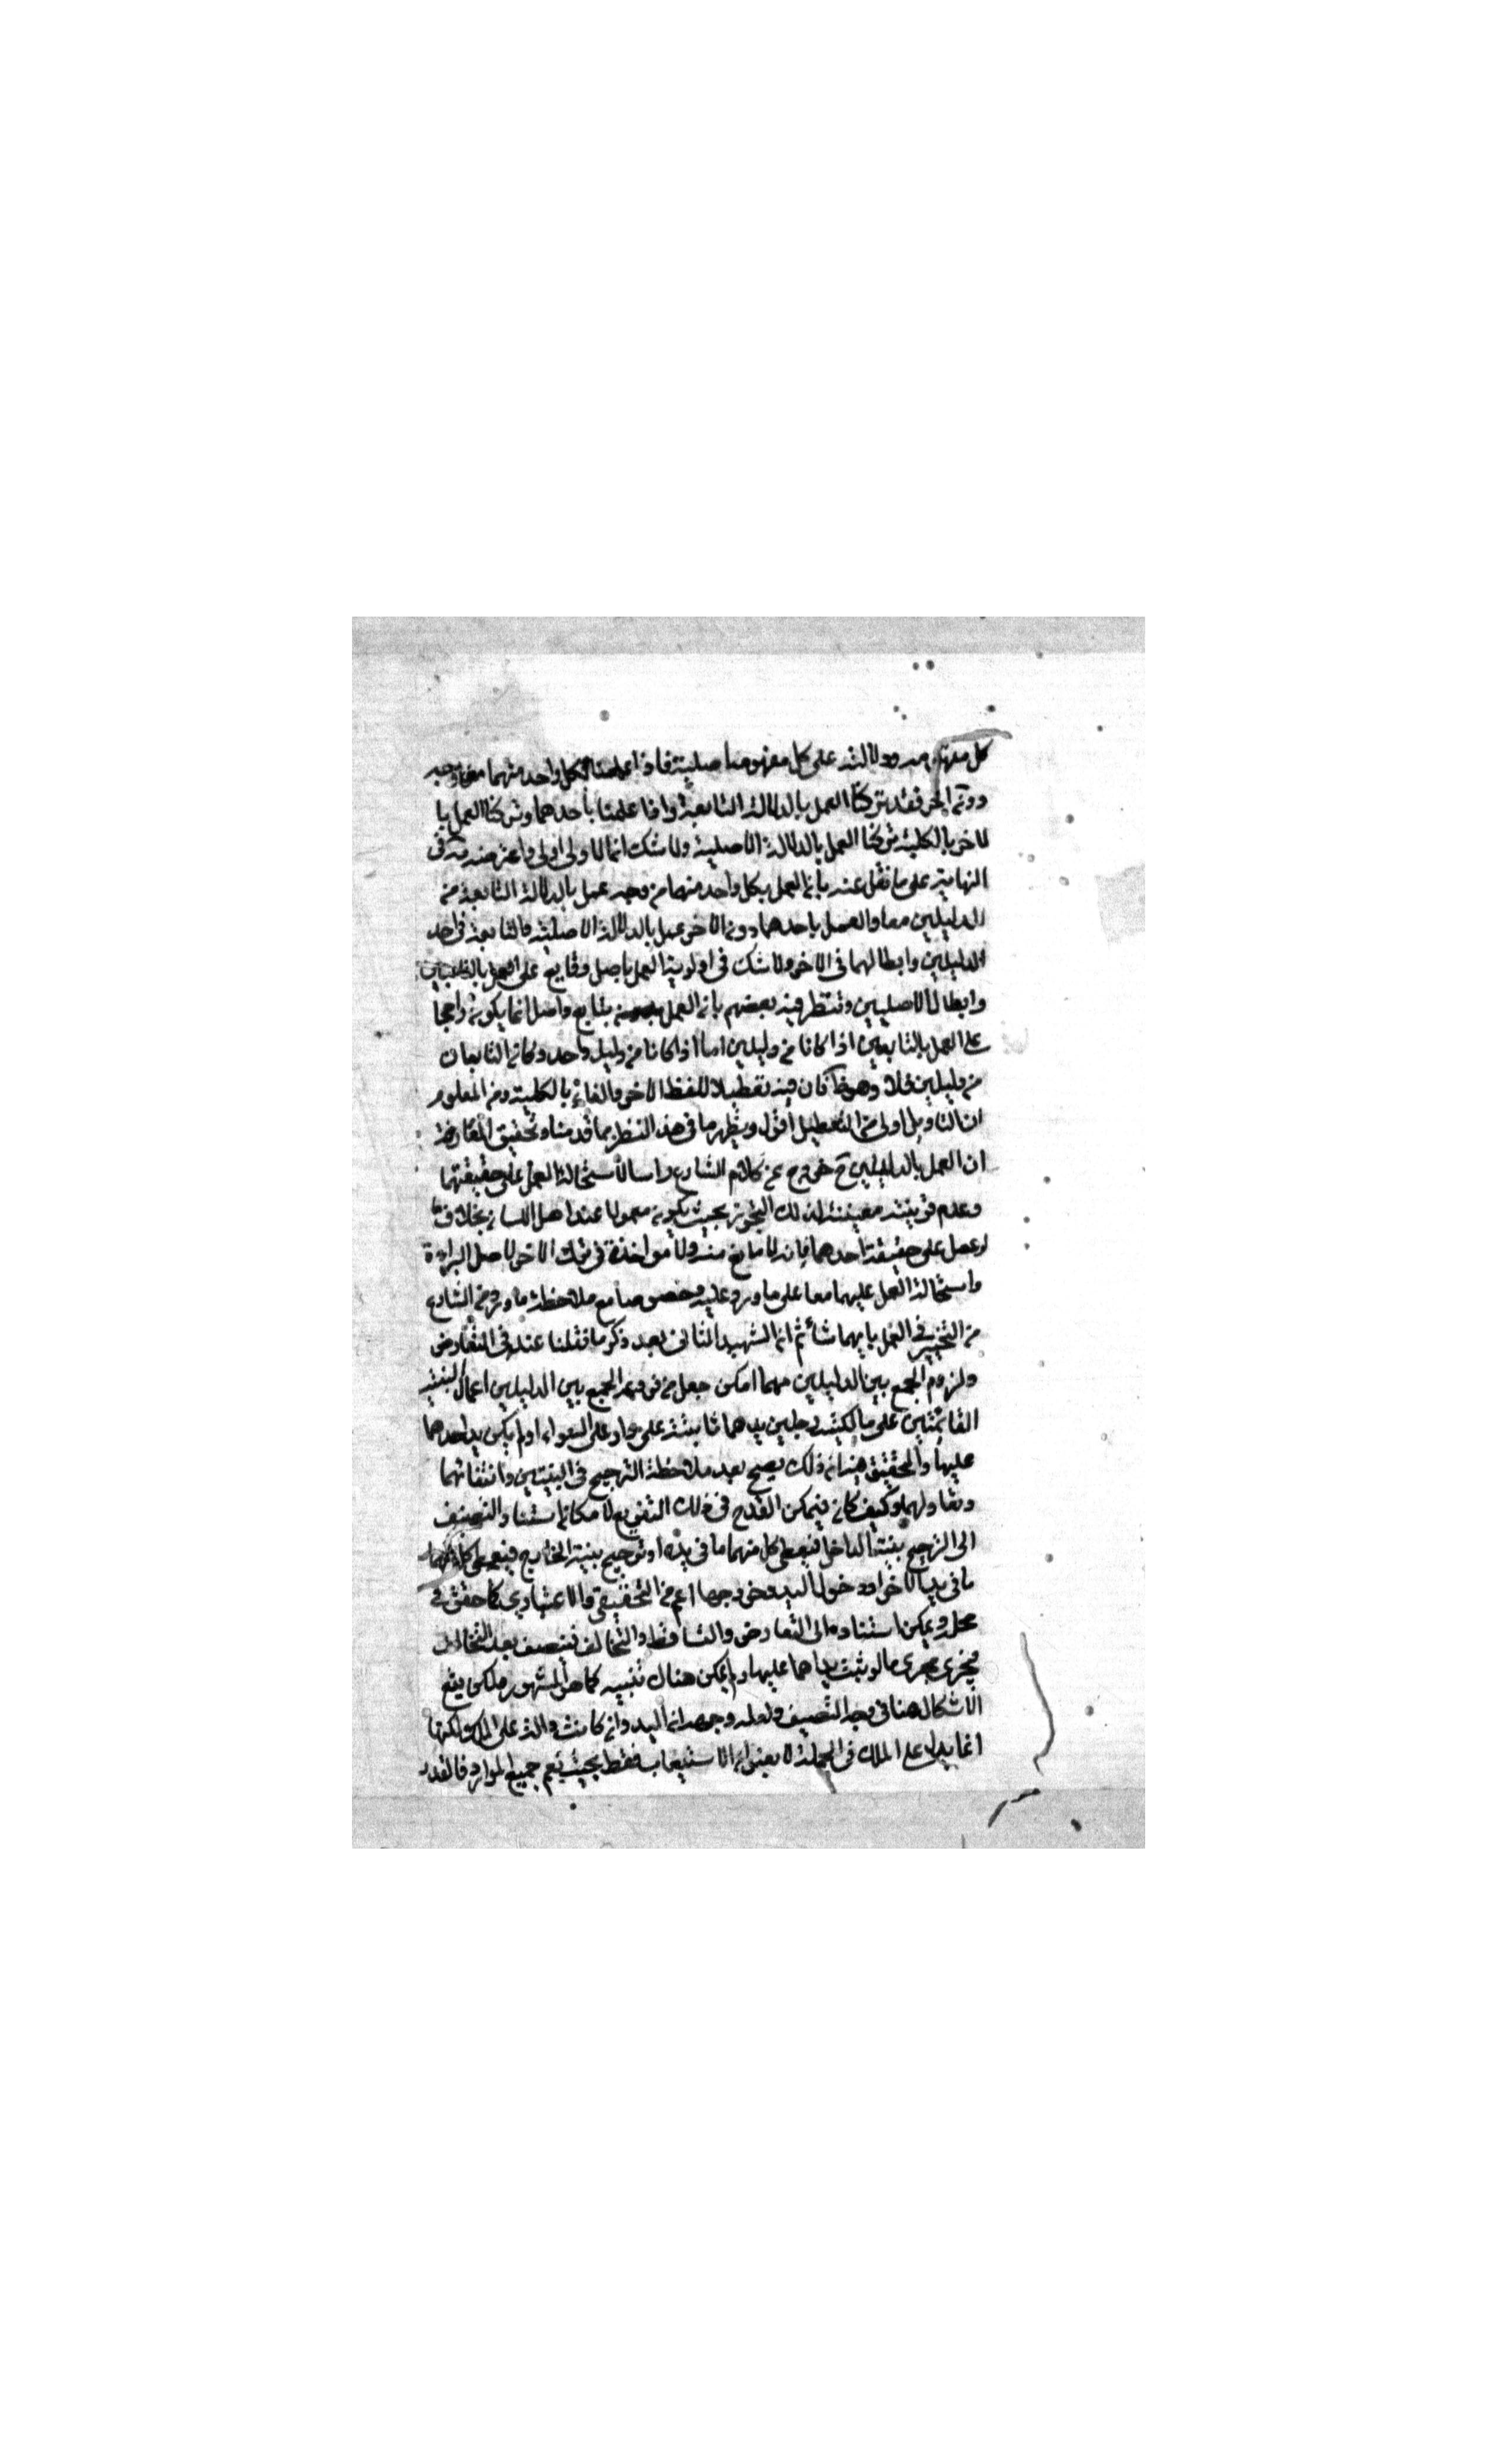 كل مفهومه ودلالته على كل مفهومه اصلية فاذا علمنا بكل واحد منهما من وجه
دون اخر فقد تركنا العمل بالدلالة التابعة واذا علمنا باحدهما وتركنا العمل با
لاخر بالكلية تركنا العمل بالدلالة الاصلية ولا شك ان الاولى اولى واعترضه في
النهاية على ما نقل عنه بان العمل بكل واحد منهما من وجه عمل بالدلالة التابعة من
الدليلين معا والعمل باحدهما دون الاخر عمل بالدلالة الاصلية والتابعة في احد
الدليلين وابطالهما في الاخر ولا شك في اولوية العمل باصل وتابع على العمل بالتابعين
وابطال الاصليين وتنظر فيه بعضهم بان العمل بتابع واصل انما يكون راجحا
على العمل بالتابعين اذا كانا من دليلين اما اذا كانا من دليل واحد وكان التابعان
من دليلين فلا وهو كان فيه تعطيلا للفظ الاخر والغاء بالكلية ومن المعلوم
ان التاويل اولى من التعطيل اقول ويظهر ما في هذا النظر بما قدمنا وتحقيق المعارضة
ان العمل بالدليلين ح خروج عن كلام الشارع راسا لاستحالة العمل على حقيقتهما
وعدم قرينة معينة لذلك التجوز بحيث يكون معمولا عند اهل اللسان بخلاف ما
لو عمل على حقيقة احدهما فانه لا مانع منه ولا مواخذة في ترك الاخر لاصل البراءة
واستحالة العمل عليهما معا على ما ورد عليه وخصوصا مع ملاحظة ما ورد من الشارع
من التخيير في العمل بايهما شاء ثم ان الشهيد الثاني بعد ذكر ما نقلنا عنه في التعارض
ولزوم الجمع بين الدليلين مهما امكن جعل من فروع الجمع بين الدليلين اعمال البينتين
القائمتين على مالكيت رجلين يدهما ثابتة على دار على السواء او لم يكن يد احدهما
عليها والتحقيق هنا ان ذلك يصح بعد ملاحظة الترجيح في البينتين وانتفائهما
وتعادلهما وكيف كان فيمكن القدح في ذلك التفريع لامكان استناد التنصيف
الى الترجيح بينة الداخل فيعطى كل منهما ما في يده او ترجيح بينة الخارج فيعطى كل منهما
ما في يد الاخر او دخول اليد وخروجها اعم من التحقيقي والاعتباري كما حقق في
محله ويمكن استناده الى التعارض والتساقط والتحالف فينصف بعد التحالف
فيجري مجرى ما لو ثبت يداهما عليها ولم يكن هناك بينة كما هو المشهور ولكن يقع
الاشكال هنا في وجه التنصيف ولعله وجهه ان اليد وان كانت دالة على الملك ولكنها
انما يدل على الملك في الجملة لا بعنوان الاستيعاب فقط بحيث يعم جميع الموارد فالقدر